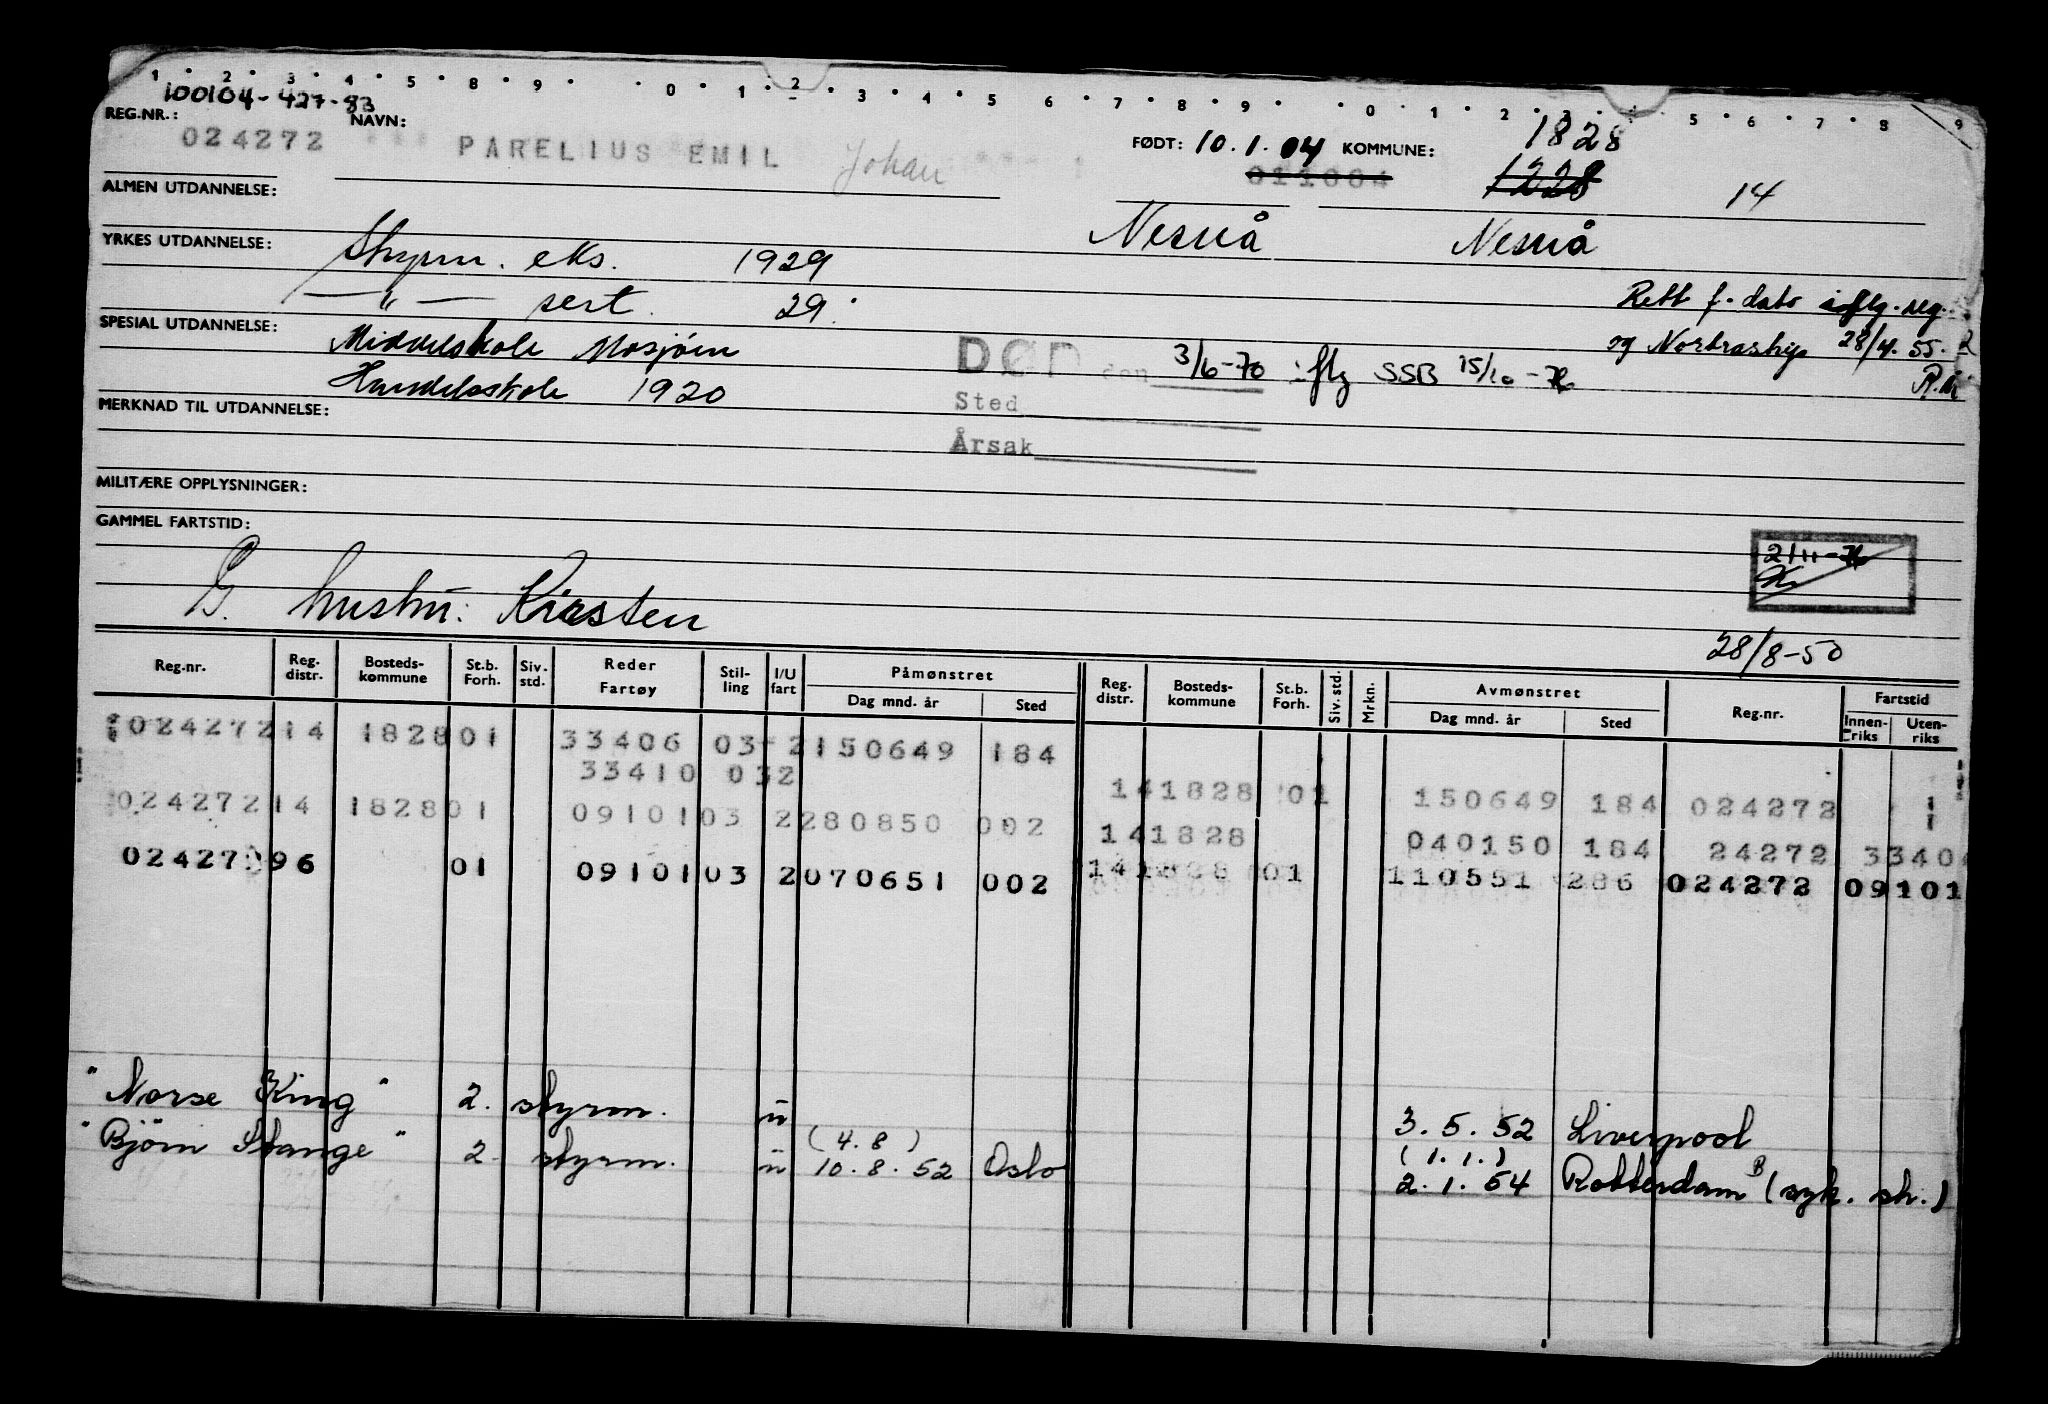 1 2 3 4 5 8 9 0 1 2 3 4 5 6 7 8 9 0 1 2 3 4 5 6 7 8 9
100104-427-83
REG.NR.: NAVN: FØDT: 10.1.04 KOMMUNE: 1828
024272 PARELIUS EMIL Johan 011004 1228 14
ALMEN UTDANNELSE: Nesnå Nesnå
YRKES UTDANNELSE: Styrm. eks. 1929
—"— sert. 29. Rett f. dato iflg. reg.
SPESIAL UTDANNELSE: og Nortraship 28/4.55.
Middelskole Mosjøen DØD den 3/6-70 iflg SSB 15/10-76
Handelsskole 1920 Sted
MERKNAD TIL UTDANNELSE:
Årsak
MILITÆRE OPPLYSNINGER:
GAMMEL FARTSTID:
2/11-76
G. hustru: Kirsten
28/8-50
Reg.nr. Reg. distr. Bosteds-kommune St.b. Forh. Siv. std. Reder Fartøy Stil-ling I/U fart Påmønstret Dag mnd. år Sted Reg. distr. Bosteds-kommune St.b. Forh. Siv. std. Mrkn. Avmønstret Dag mnd. år Sted Reg.nr. Fartstid Innen-riks Uten-riks
024272 14 1828 01 33406 03 2 150649 184
33410 03 2 14 1828 01 150649 184 024272
024272 14 1828 01 09101 03 2 280850 002 14 1828 040150 184 24272 3340
02427 96 01 09101 03 2 070651 002 14 01 110551 286 024272 09101
"Norse King" 2. styrm. u 3.5.52 Liverpool
(4.8) (1.1.)
"Bjørn Stange" 2. styrm. u 10.8.52 Oslo 2.1.54 Rotterdam B (syk. sh.)